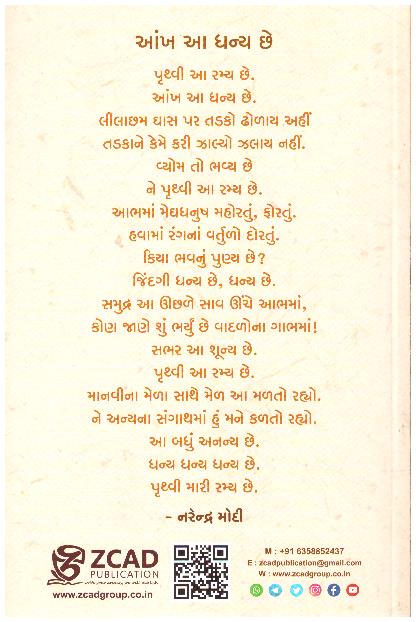 આંખ આ ધન્ય છે
પૃથ્વી આ રમ્ય છે.
આંખ આ ધન્ય છે.
લીલાછમ ઘાસ પર તડકો ઢોળાય અહીં
તડકાને કેમે કરી ઝાલ્યો ઝલાય નહીં.
વ્યોમ તો ભવ્ય છે
ને પૃથ્વી આ રમ્ય છે.
આભમાં મેઘધનુષ મહોરતું, ફોરતું.
હવામાં રંગનાં વર્તુળો દોરતું.
કિયા ભવનું પુણ્ય છે?
જિંદગી ધન્ય છે, ધન્ય છે.
સમુદ્ર આ ઊછળે સાવ ઊંચે આભમાં,
કોણ જાણે શું ભર્યું છે વાદળોના ગાભમાં!
સભર આ શૂન્ય છે.
પૃથ્વી આ રમ્ય છે.
માનવીના મેળા સાથે મેળ આ મળતો રહ્યો.
ને અન્યના સંગાથમાં હું મને કળતો રહ્યો.
આ બધું અનન્ય છે.
ધન્ય ધન્ય ધન્ય છે.
પૃથ્વી મારી રમ્ય છે.
- નરેન્દ્ર મોદી
ZCAD
PUBLICATION
www.zcadgroup.co.in
M : +91 6358852437
E : zcadpublication@gmail.com
W : www.zcadgroup.co.in